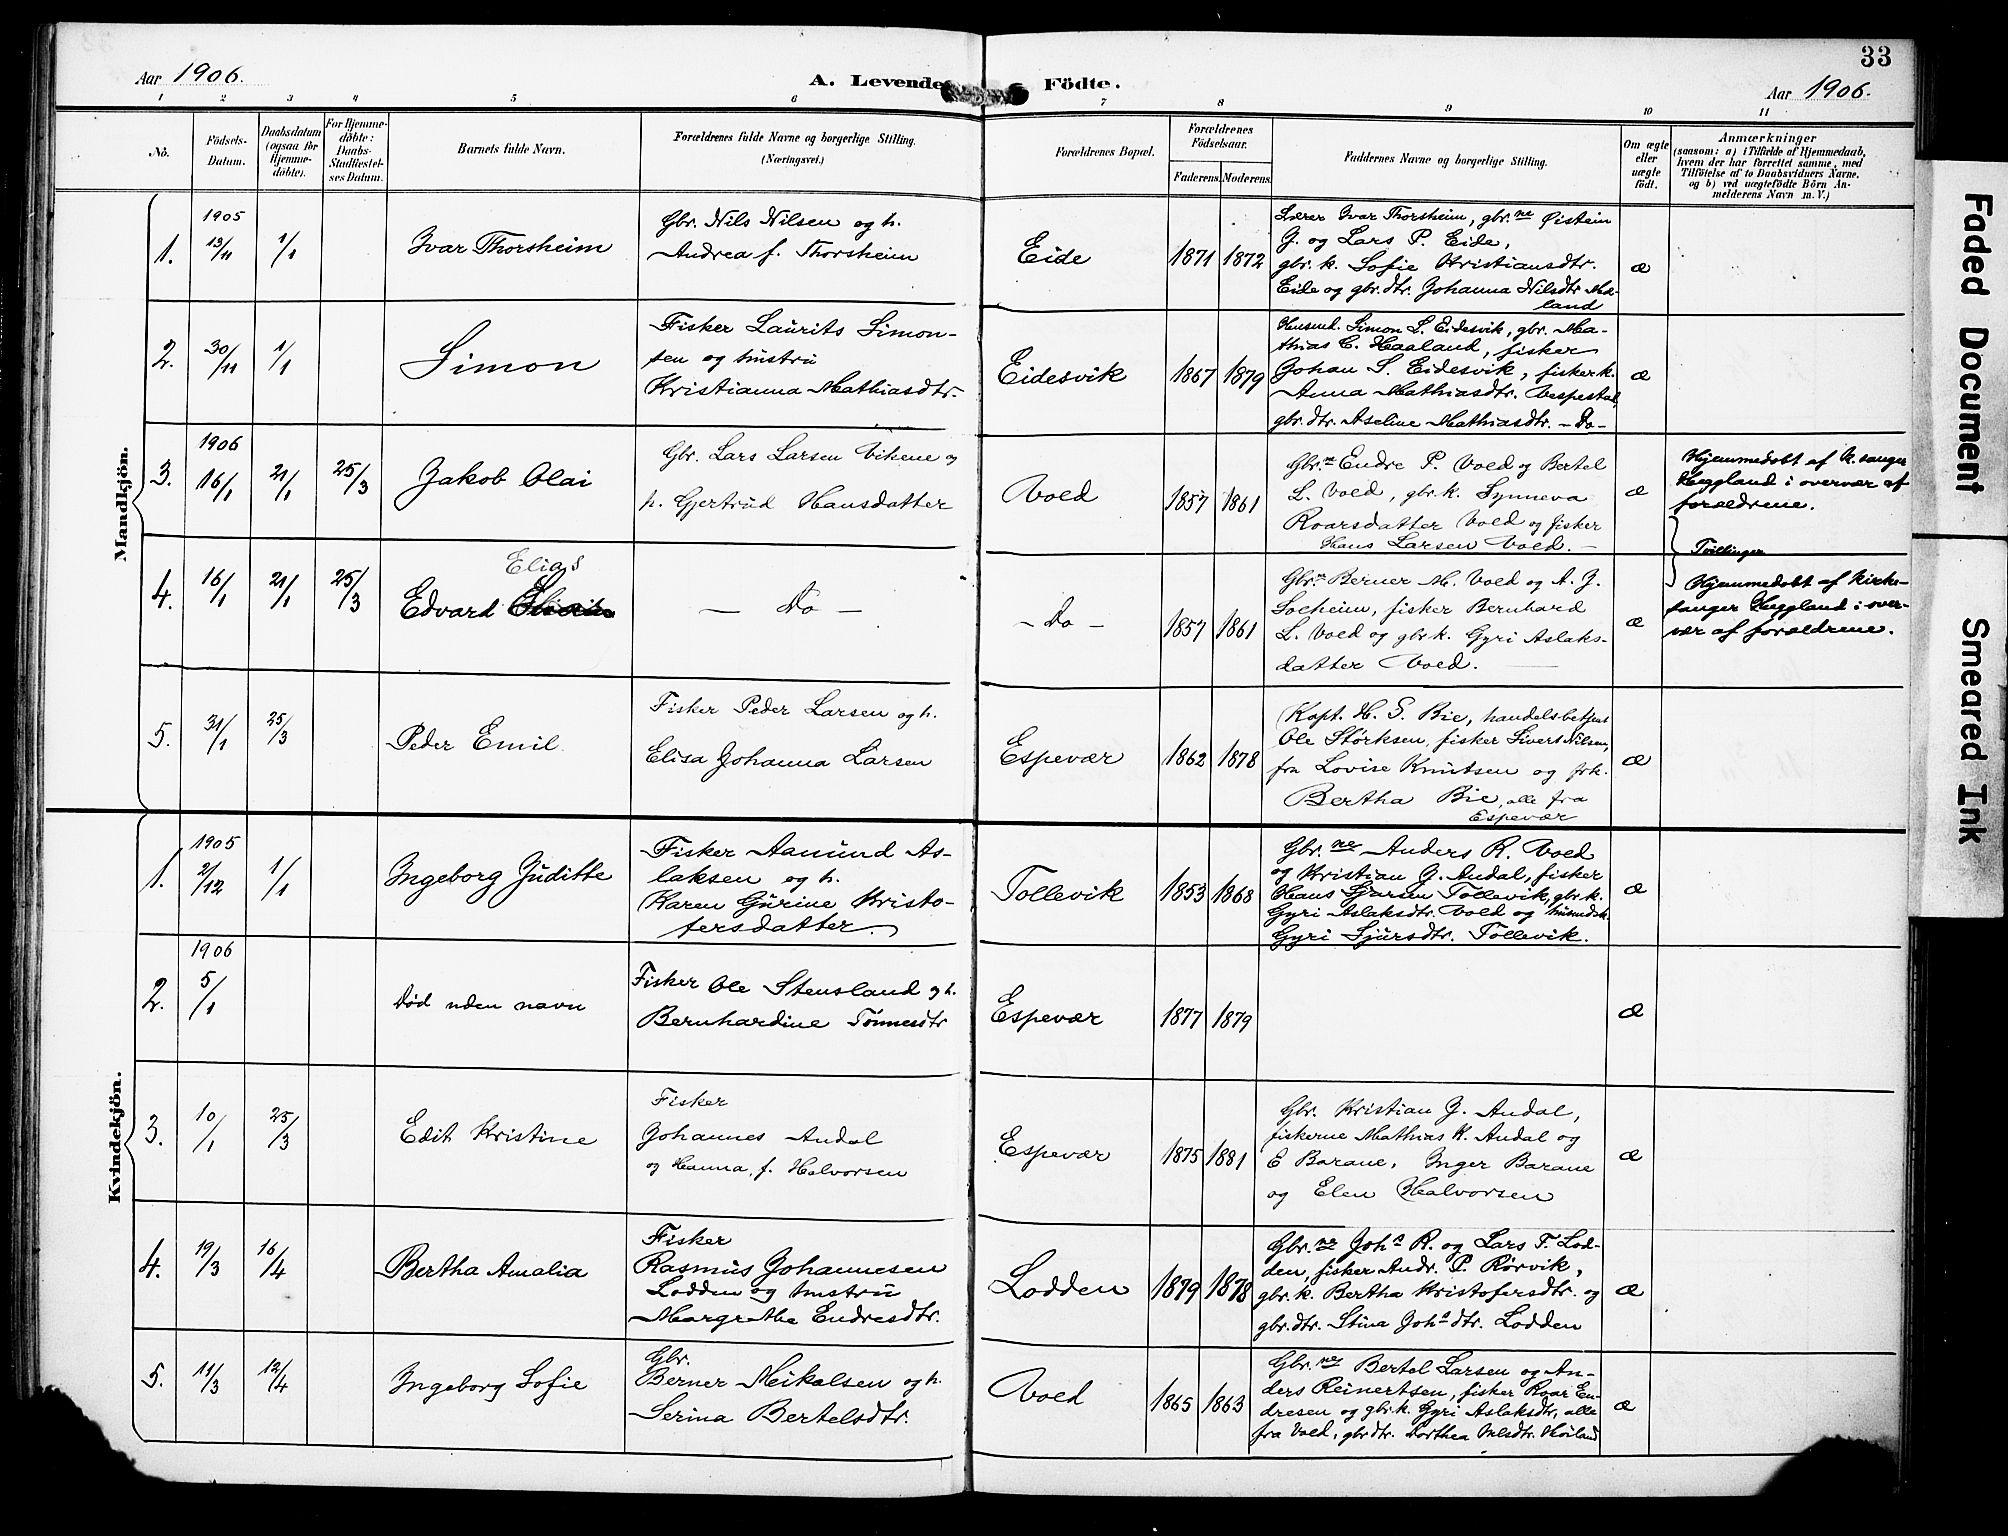 33
Aar 1906.
A. Levende Födte.
Aar 1906.
1 2 3 4 5 6 7 8 9 10 11
No.
Födsels-
Datum.
Daabsdatum
(ogsaa for
Hjemme-
döbte).
For Hjemme-
döbte:
Daabs-
Stadfæstel-
ses Datum.
Barnets fulde Navn.
Forældrenes fulde Navne og borgerlige Stilling.
(Næringsvei.)
Forældrenes Bopæl.
Forældrenes
Födselsaar.
Faderens. Moderens.
Faddernes Navne og borgerlige Stilling.
Om ægte
eller
uægte
födt.
Anmærkninger
(saasom: a) i Tilfælde af Hjemmedaab,
hvem der har forrettet samme, med
Tilföielse af to Daabsvidners Navne.
og b) ved uægtefödte Börn An-
melderens Navn m. V.)
Mandkjön.
1.
1905
13/11
1/1
Ivar Thorsheim
Gbr. Nils Nilsen og h.
Andrea f. Thorsheim
Eide
1871 1872
Lærer Ivar Thorsheim, gbr.ne Øistein
J. og Lars P. Eide,
gbr.k. Sofie Kristiansdtr.
Eide og gbr.dtr. Johanna Nilsdtr
land
æ
2.
30/11
1/1
Simon
Fisker Laurits Simon-
sen og hustru
Kristianna Mathiasdtr.
Eidesvik
1867 1879
Husmd. Simon L. Eidesvik, gbr. Ma-
thias C. Haaland, fisker
Johan S. Eidesvik, fisker k.
Anna Mathiasdtr. Vespestal,
gbr.dtr. Aseline Mathiasdtr. – Do –
æ
3.
1906
16/1
21/1
25/3
Jakob Olai
Gbr. Lars Larsen Vikene og
h. Gjertrud Hansdatter
Vold
1857 1861
Gbr.ne Endre P. Vold og Bertel
L. Vold, gbr.k. Synneva
Roarsdatter Vold og fisker
Hans Larsen Vold. –
æ
Hjemmedøbt af K.sanger
Heggland i overvær af
forældrene.
Tvillinger
4.
16/1
21/1
25/3
Elias
Edvard
– Do –
– Do –
1857 1861
Gbr.ne Berner M. Vold og A. J.
Solheim, fisker Bernhard
L. Vold og gbr.k. Gyri Aslaks-
datter Vold.
æ
Hjemmedøbt af Kirke-
sanger Heggland i over-
vær af forældrene.
5.
31/1
25/3
Peder Emil
Fisker Peder Larsen og h.
Elisa Johanna Larsen
Espevær
1862 1878
Kapt. H. S. Bie, handelsbetjent
Ole Størksen, fisker Sivert Nilsen,
fra Lovise Knutsen og frk.
Bertha Bie, alle fra
Espevær
æ
Kvindekjön.
1.
1905
2/12
1/1
Ingeborg Juditte
Fisker Aamund As-
laksen og h.
Karen Gurine Kristo-
fersdatter.
Tollevik
1853 1868
Gbr.ne Anders R. Vold
og Kristian J. Andal, fisker
Hans Sjursen Tollevik, gbr.k.
Gyri Aslaksdtr. Vold og husmdsk.
Gyri Sjursdtr. Tollevik.
æ
2.
1906
5/1
Død uden navn
Fisker Ole Stensland og h.
Bernhardine Tønnesdtr
Espevær
1877 1879
æ
3.
10/1
25/3
Edit Kristine
Fisker
Johannes Andal
og Hanna, f. Halvorsen
Espevær
1875 1881
Gbr. Kristian J. Andal,
fiskerne Mathias K. Andal og
E Barane, Inger Barane
og Elen Halvorsen
æ
4.
19/3
16/4
Bertha Amalia
Fisker
Rasmus Johannesen
Lodden og hustru
Margrethe Endresdtr.
Lodden
1879 1878
Gbr.ne Johs R. og Lars T. Lod-
den, fisker Andr. P. Rørvik,
gbr.k. Bertha Kristofersdtr. og
gbr.dtr. Stina Johsdtr. Lodden
æ
5.
11/3
12/4
Ingeborg Sofie
Gbr.
Berner Mikalsen og h.
Serina Bertelsdtr.
Vold
1865 1863
Gbr.ne Bertel Larsen og An-
ders Reinertsen, fisker Roar En-
dresen og gbr.k. Gyri Aslaksdtr, alle
fra Vold, gbrdtr. Dorthea
æ
Faded Document
Smeared Ink